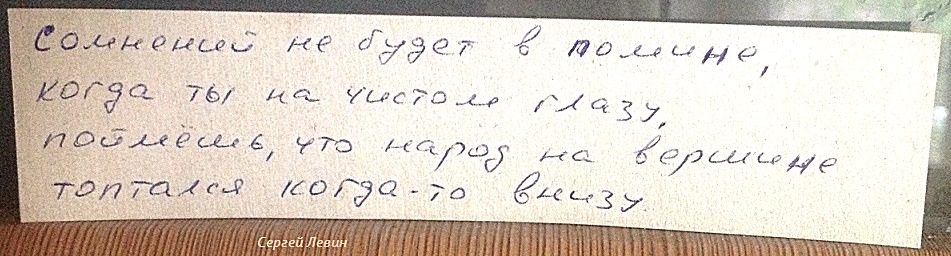 Сомнений не будет в помине,
когда ты на чистом глазу,
поймёшь, что народ на вершине
топтался когда-то внизу
Сергей Левин